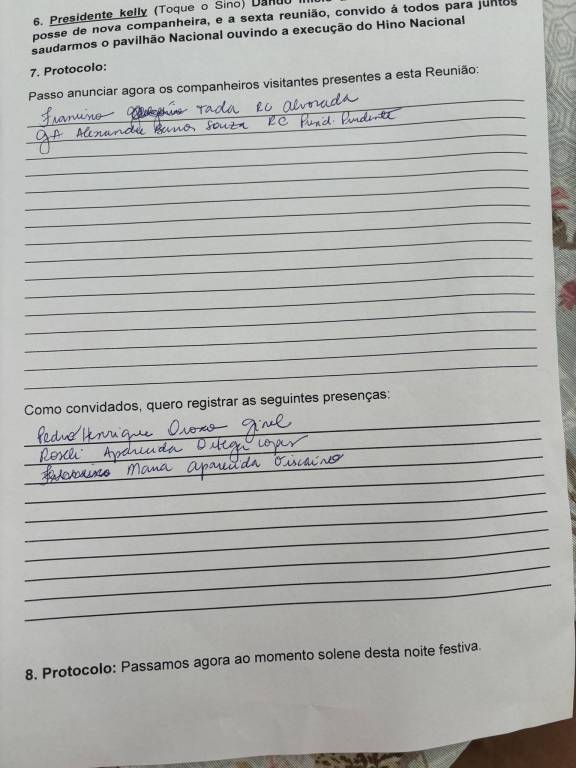 6. Presidente kelly (Toque o Sino) Dando
posse de nova companheira, e a sexta reunião, convido á todos para juntos
saudarmos o pavilhão Nacional ouvindo a execução do Hino Nacional
7. Protocolo:
Passo anunciar agora os companheiros visitantes presentes a esta Reunião:
Tada RC Alvorada
GA Alexandre Souza RC Presid. Prudente
Como convidados, quero registrar as seguintes presenças:
Pedro Henrique
Roseli Aparecida
Maria Aparecida
8. Protocolo: Passamos agora ao momento solene desta noite festiva.